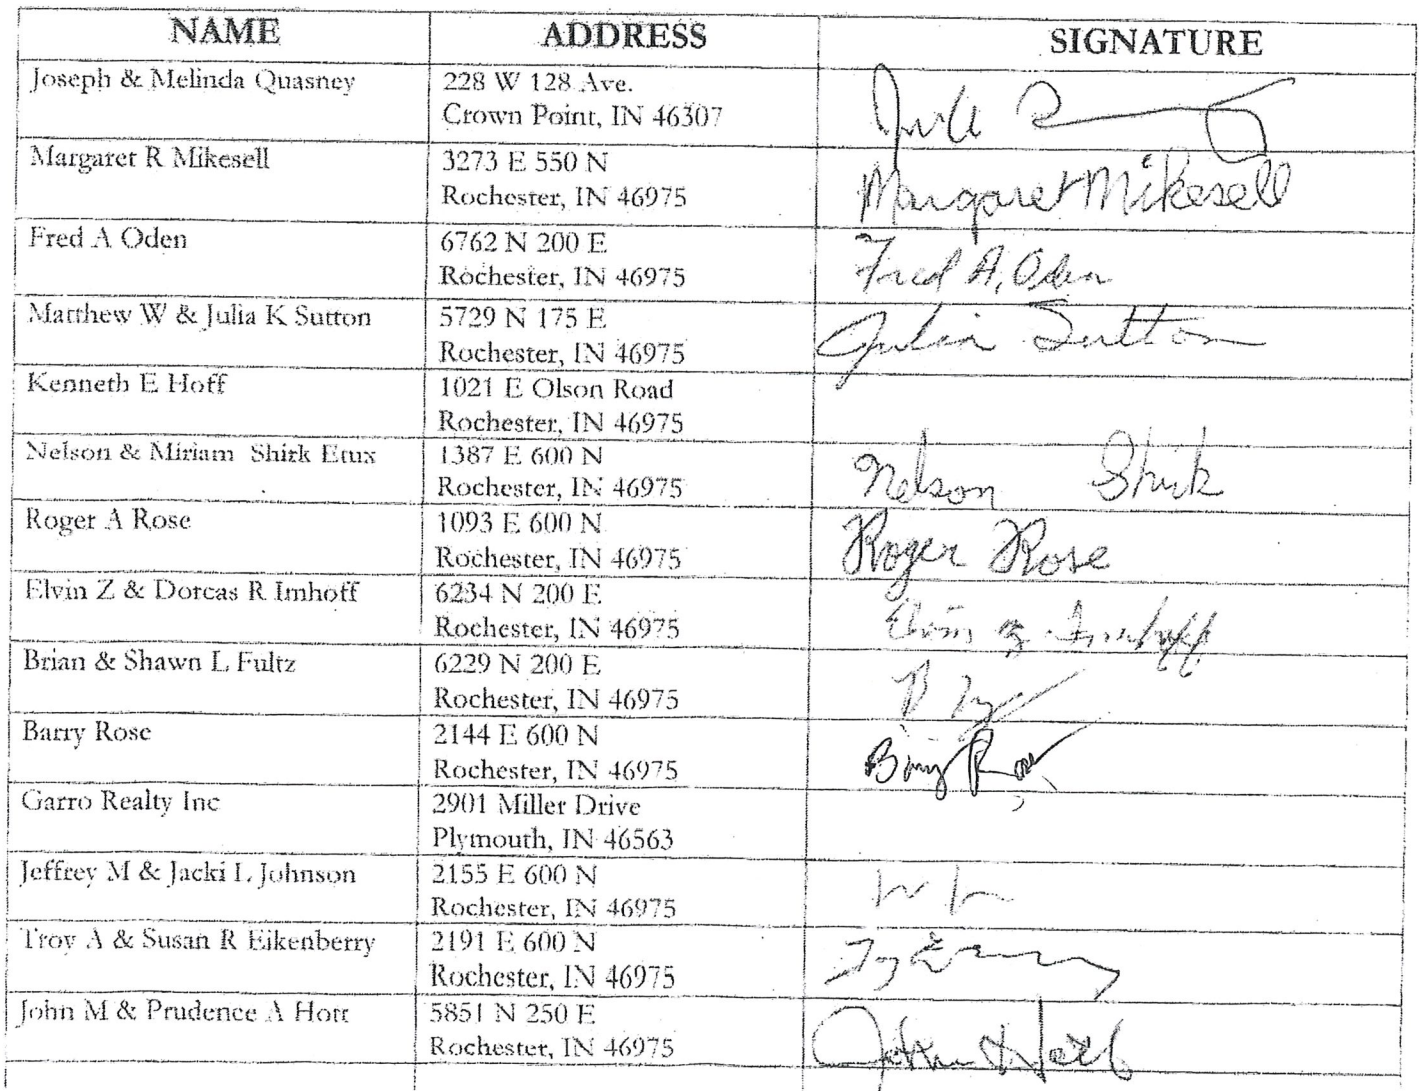 NAME ADDRESS SIGNATURE
Joseph & Melinda Quasney 228 W 128 Ave.
Crown Point, IN 46307
Margaret R Mikesell 3273 E 550 N
Rochester, IN 46975 Margaret Mikesell
Fred A Oden 6762 N 200 E
Rochester, IN 46975 Fred A. Oden
Matthew W & Julia K Sutton 5729 N 175 E
Rochester, IN 46975 Julia Sutton
Kenneth E Hoff 1021 E Olson Road
Rochester, IN 46975
Nelson & Miriam Shirk Etux 1387 E 600 N
Rochester, IN 46975 Nelson Shirk
Roger A Rose 1093 E 600 N
Rochester, IN 46975 Roger Rose
Elvin Z & Dorcas R Imhoff 6234 N 200 E
Rochester, IN 46975 Elvin Z. Imhoff
Brian & Shawn L Fultz 6229 N 200 E
Rochester, IN 46975
Barry Rose 2144 E 600 N
Rochester, IN 46975 Barry Rose
Garro Realty Inc 2901 Miller Drive
Plymouth, IN 46563
Jeffrey M & Jacki L Johnson 2155 E 600 N
Rochester, IN 46975
Troy A & Susan R Eikenberry 2191 E 600 N
Rochester, IN 46975
John M & Prudence A Hott 5851 N 250 E
Rochester, IN 46975 John Hott